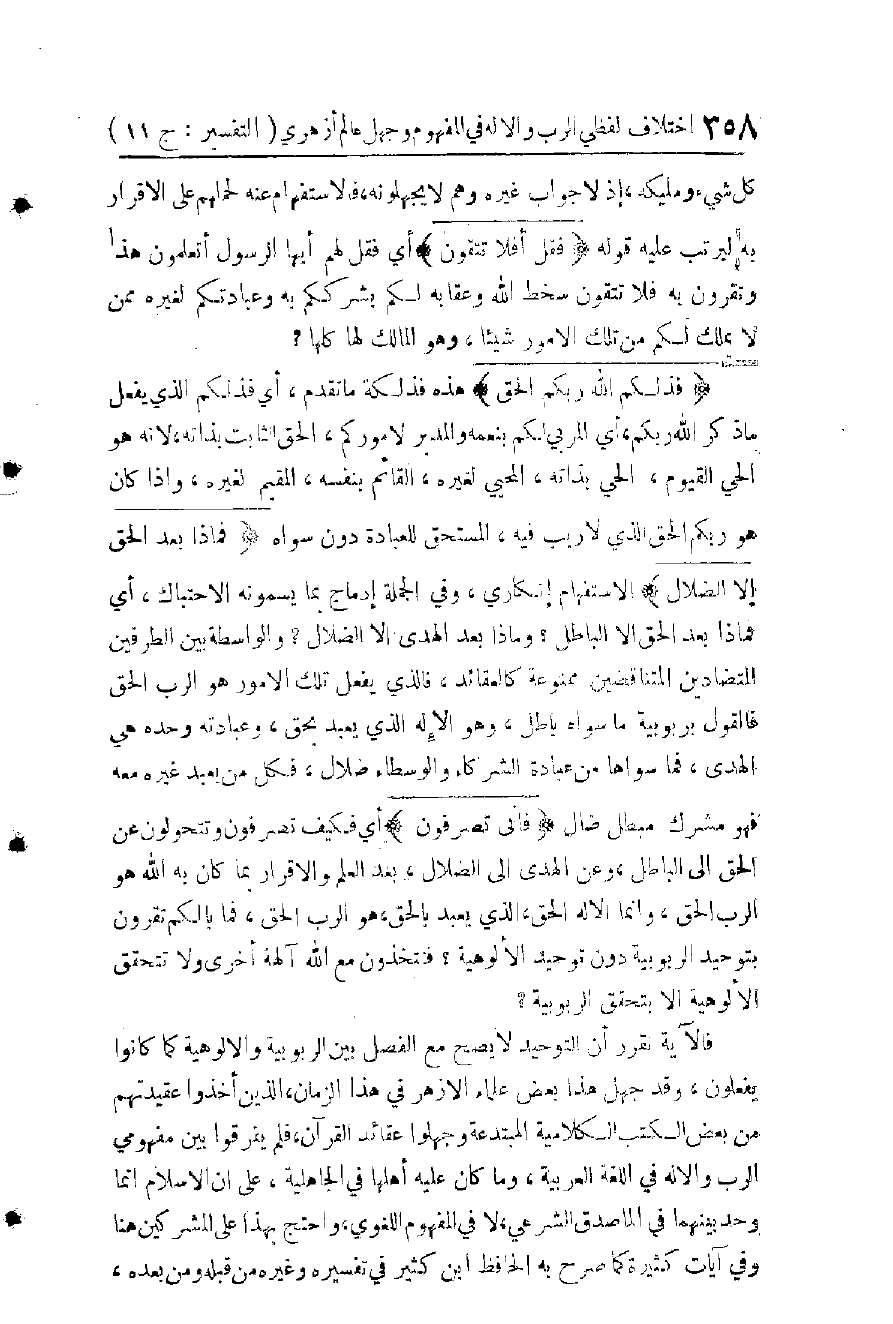 ٣٥٨ اختلاف لفظي الرب والاله في المفهوم وجهل عالم أزهري ( التفسير : ج ١١ )
كل شيء ومليكه ، إذ لا جواب غيره وهم لا يجهلونه ، فالاستفهام عنه لحملهم على الاقرار
به ليرتب عليه قوله ﴿ فقل أفلا تتقون ﴾ أي فقل لهم أيها الرسول أتعلمون هذا
وتقرون به فلا تتقون سخط الله وعقابه لكم بشرككم به وعبادتكم لغيره ممن
لا يملك لكم من تلك الامور شيئا ، وهو المالك لها كلها ؟
﴿ فذلكم الله ربكم الحق ﴾ هذه فذلكة ما تقدم ، أي فذلكم الذي يفعل
ما ذكر الله ربكم ، أي المربي لكم بنعمه والمدبر لاموركم ، الحق الثابت بذاته ، لانه هو
الحي القيوم ، الحي بذاته ، المحيي لغيره ، القائم بنفسه ، المقيم لغيره ، واذا كان
هو ربكم الحق الذي لا ريب فيه ، المستحق للعبادة دون سواه ﴿ فماذا بعد الحق
إلا الضلال ﴾ الاستفهام إنكاري ، وفي الجملة إدماج بما يسمونه الاحتباك ، أي
فماذا بعد الحق الا الباطل ؟ وماذا بعد الهدى الا الضلال ؟ والواسطة بين الطرفين
المتضادين المتناقضين ممنوعة كالعقائد ، فالذي يفعل تلك الامور هو الرب الحق
فالقول بربوبية ما سواه باطل ، وهو الإله الذي يعبد بحق ، وعبادته وحده هي
الهدى ، فما سواها من عبادة الشركاء والوسطاء ضلال ، فكل من يعبد غيره معه
فهو مشرك مبطل ضال ﴿ فأنى تصرفون ﴾ أي فكيف تصرفون وتتحولون عن
الحق الى الباطل ، وعن الهدى الى الضلال ، بعد العلم والاقرار بما كان به الله هو
الرب الحق ، وانما الاله الحق ، الذي يعبد بالحق ، هو الرب الحق ، فما بالكم تقرون
بتوحيد الربوبية دون توحيد الألوهية ؟ فتتخذون مع الله آلهة أخرى ولا تتحقق
الألوهية الا بتحقق الربوبية ؟
فالآية تقرر أن التوحيد لا يصح مع الفصل بين الربوبية والالوهية كما كانوا
يفعلون ، وقد جهل هذا بعض علماء الازهر في هذا الزمان ، الذين أخذوا عقيدتهم
من بعض الكتب الكلامية المبتدعة وجهلوا عقائد القرآن ، فلم يفرقوا بين مفهومي
الرب والاله في اللغة العربية ، وما كان عليه أهلها في الجاهلية ، على ان الاسلام انما
وحد بينهما في الماصدق الشرعي ، لا في المفهوم اللغوي ، واحتج بهذا على المشركين هنا
وفي آيات كثيرة كما صرح به الحافظ ابن كثير في تفسيره وغيره من قبله ومن بعده ،